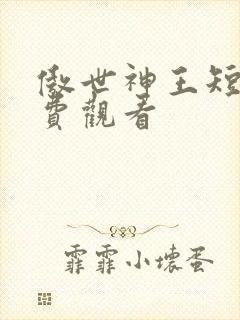 傲世神王短
費觀看
霏霏小壞蛋